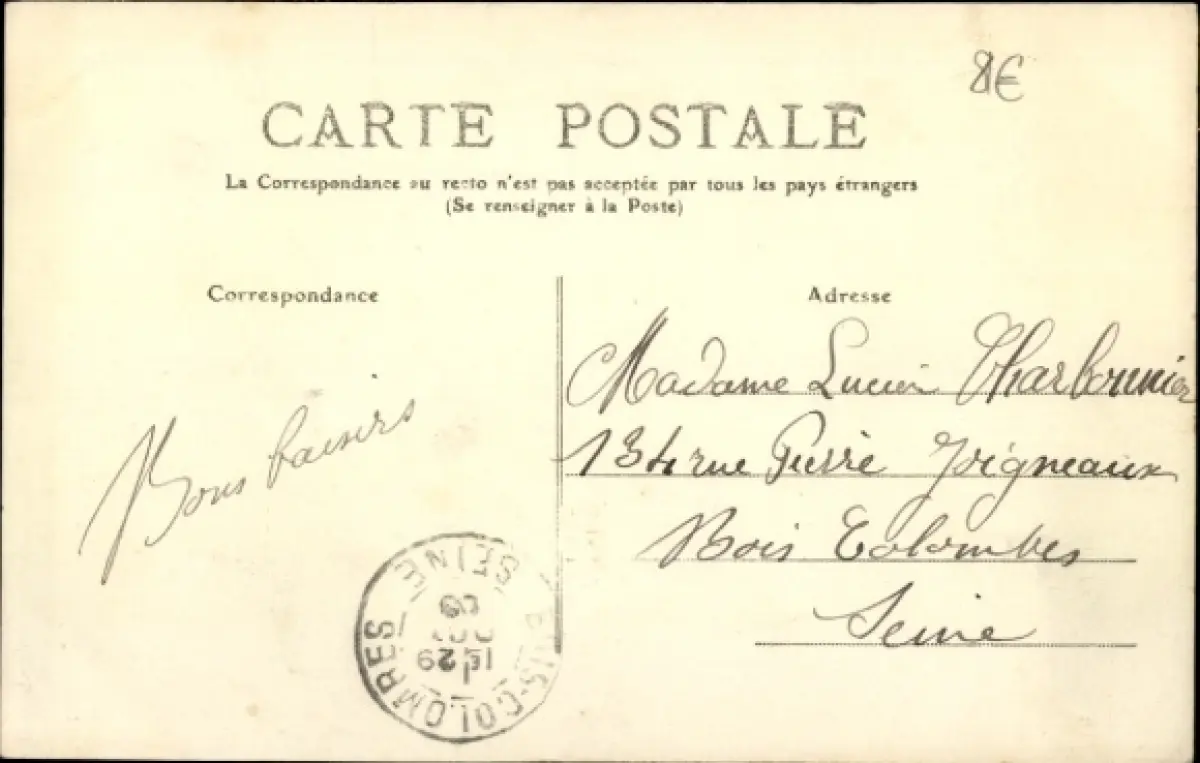 8€
CARTE POSTALE
La Correspondance au recto n'est pas acceptée par tous les pays étrangers
(Se renseigner à la Poste)
Correspondance
Adresse
Madame Lucien Charbonnier
134 rue Pierre Joigneaux
Bois Colombes
Seine
Bons baisers
BOIS-COLOMBES
SEINE
29
09